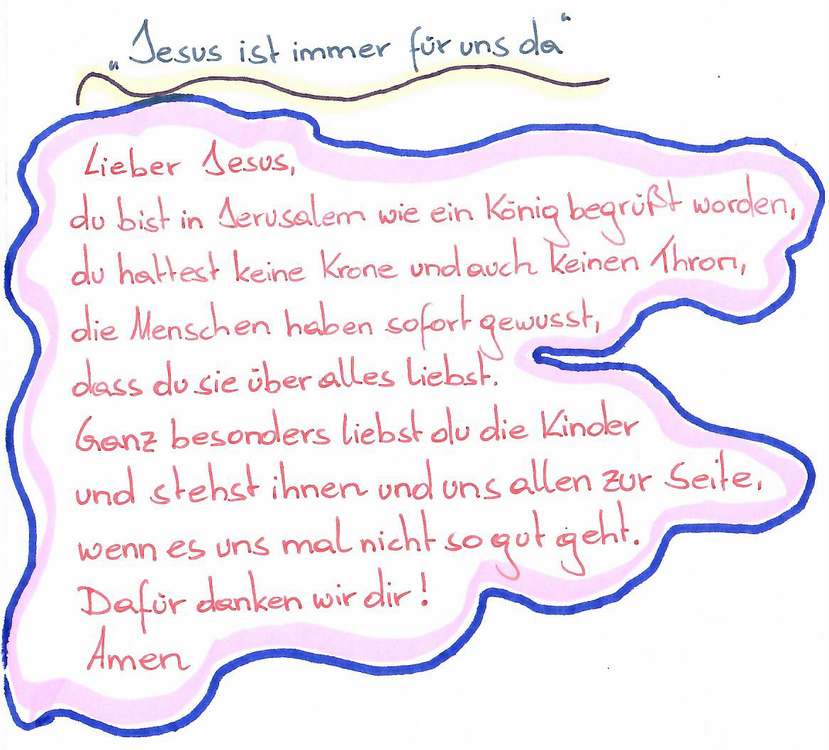 „Jesus ist immer für uns da“
Lieber Jesus,
du bist in Jerusalem wie ein König begrüßt worden,
du hattest keine Krone und auch keinen Thron,
die Menschen haben sofort gewusst,
dass du sie über alles liebst.
Ganz besonders liebst du die Kinder
und stehst ihnen und uns allen zur Seite,
wenn es uns mal nicht so gut geht.
Dafür danken wir dir!
Amen